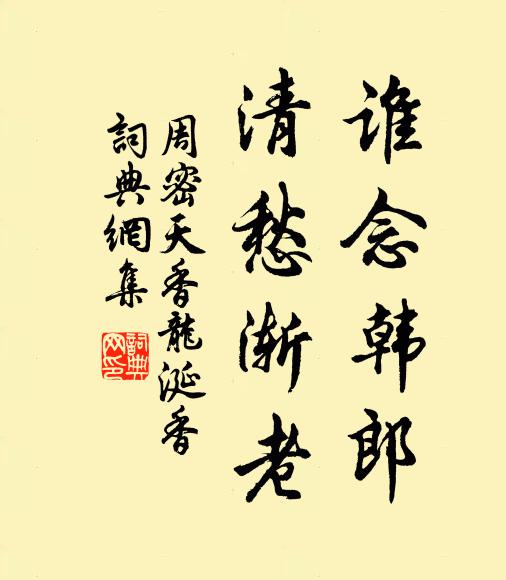 谁念韩郎
清愁渐老
周密天香龍涎香
詞典網集
詞典网印